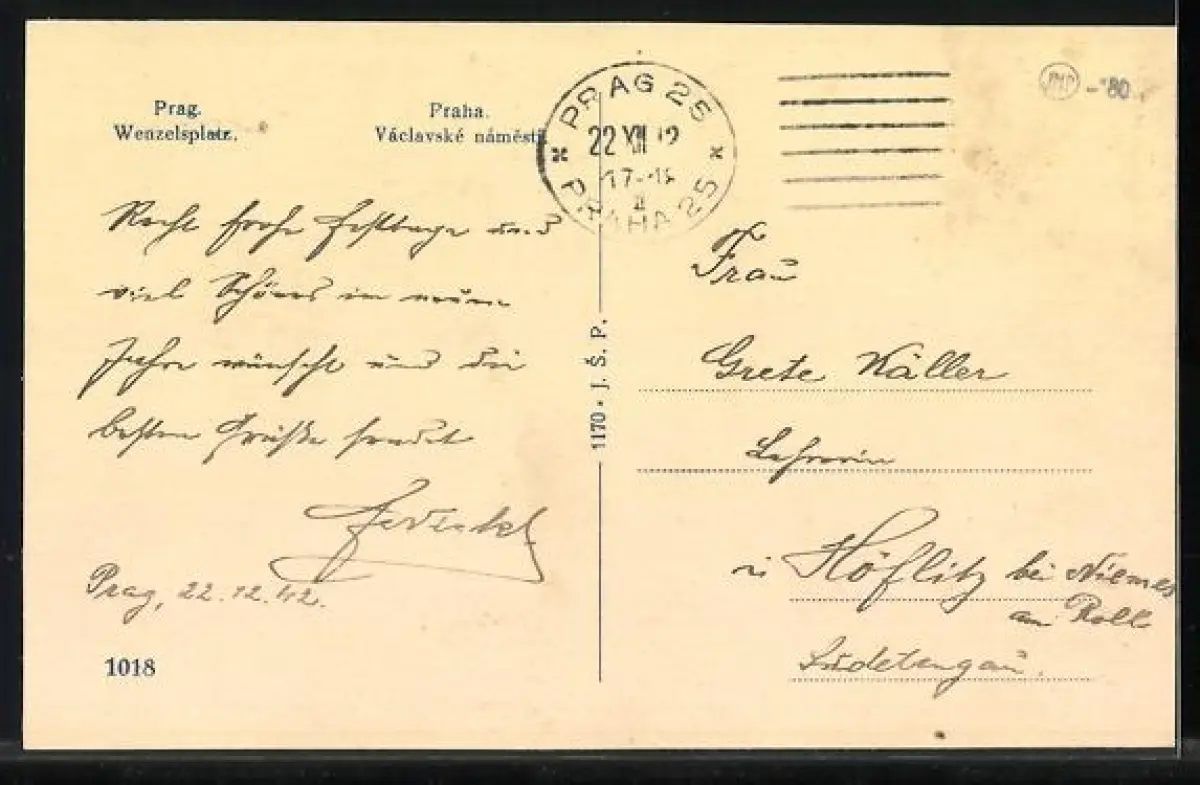 Prag.
Wenzelsplatz.
Praha.
Václavské náměstí
PRAG 25
22 XII 42
17-18
PRAHA 25
-'80
Recht frohe Festtage und
viel Schönes im neuen
Jahre wünscht und die
besten Grüße sendet
Prag, 22.12.42.
1018
1170 · J. Š. P.
Frau
Grete Käller
Lehrerin
in Höflitz bei Niemes
am Roll
Sudetengau.